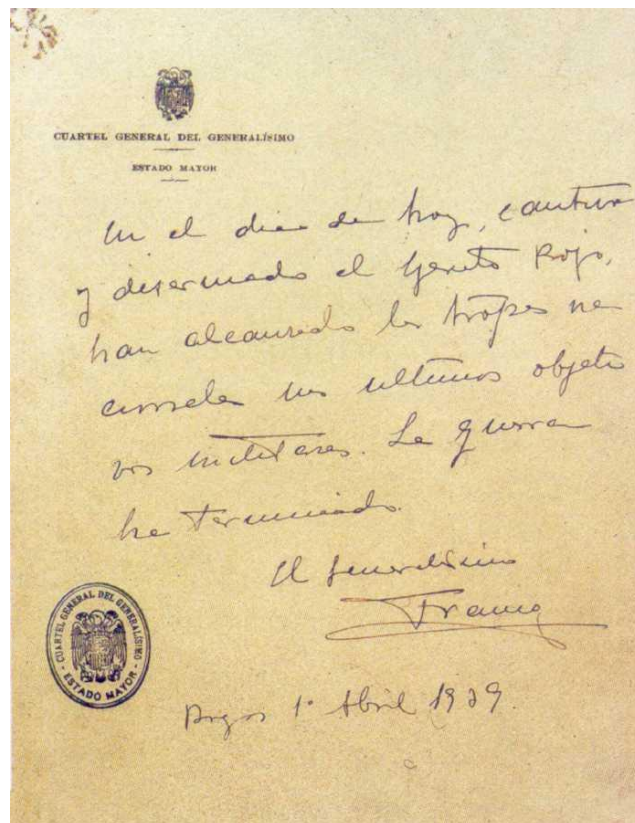 CUARTEL GENERAL DEL GENERALÍSIMO
ESTADO MAYOR
En el dia de hoy, cautivo
y desarmado el Ejercito Rojo,
han alcanzado las tropas na
cionales sus ultimos objeti
vos militares. La guerra
ha terminado.
El Generalisimo
Franco
CUARTEL GENERAL DEL GENERALÍSIMO
- ESTADO MAYOR -
Burgos 1º Abril 1939.